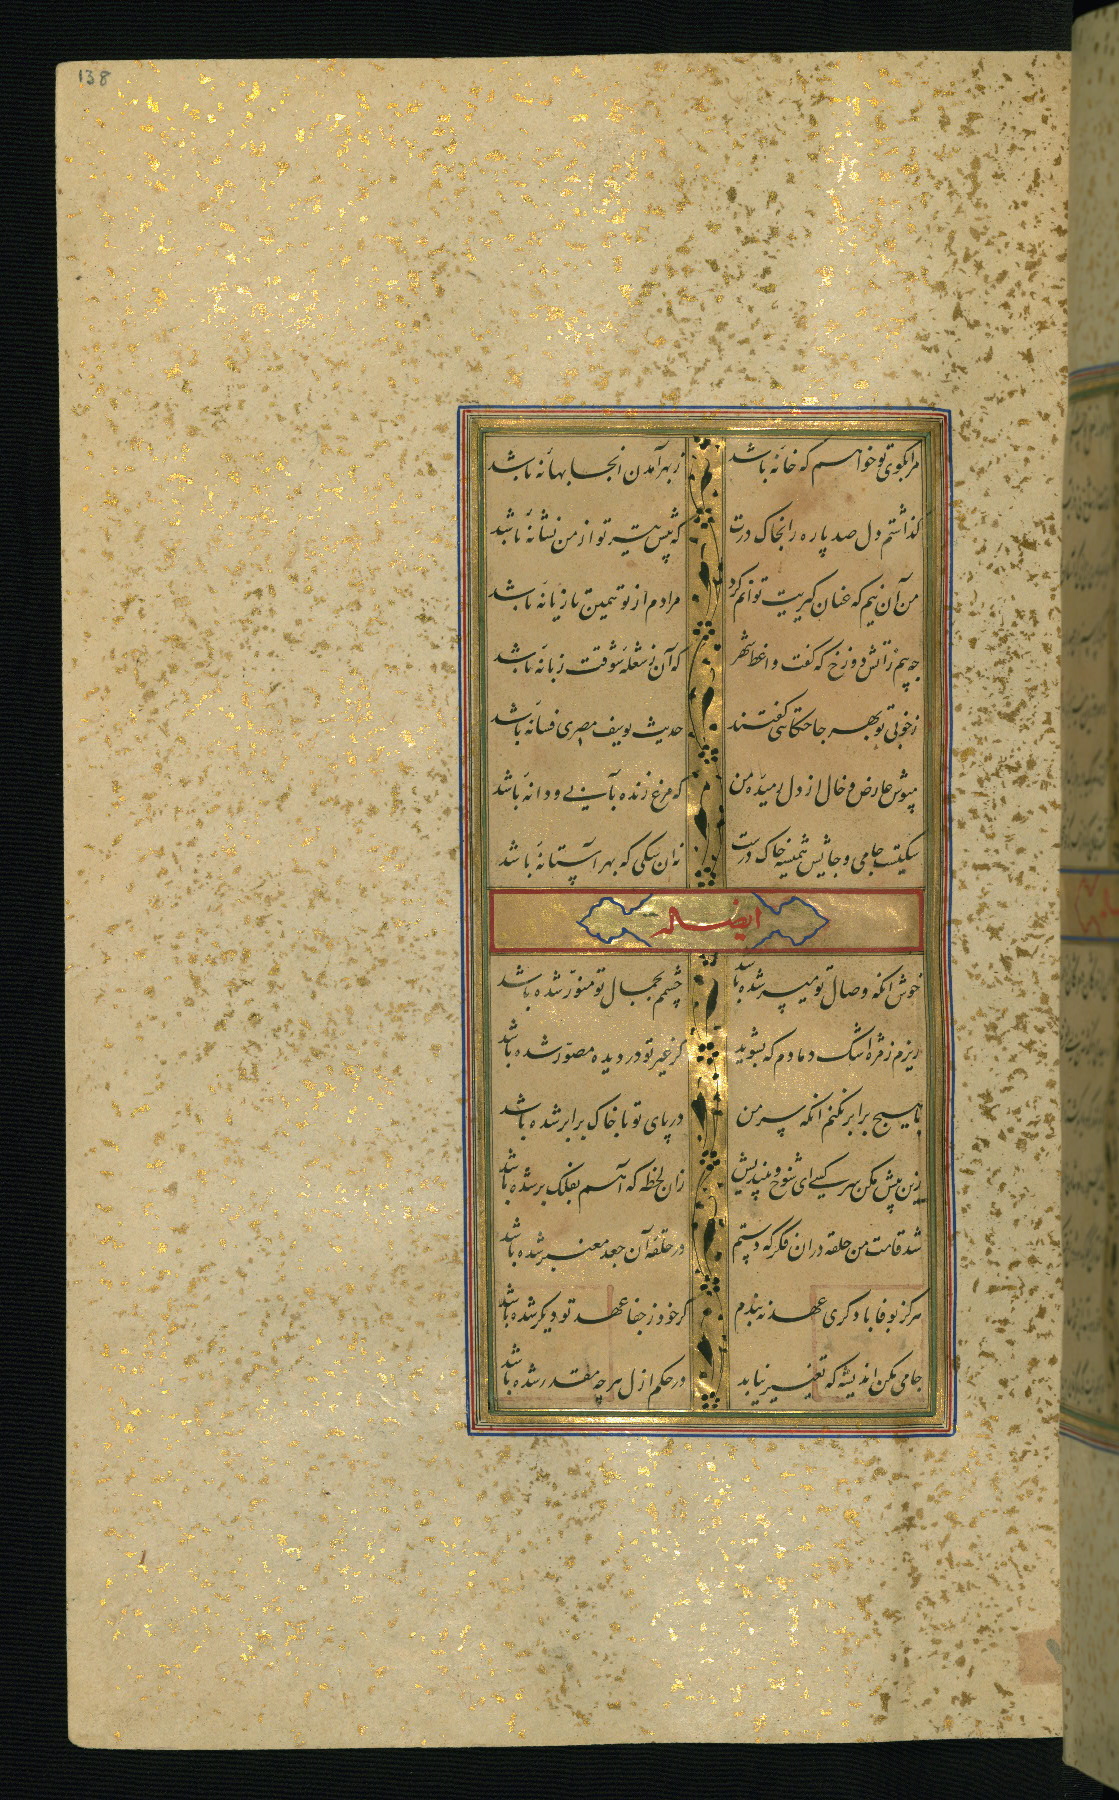 138
مرا بکوی تو خواهم که خانه باشد
ز بهر آمدن آنجا بهانه باشد
گذاشتم دل صد پاره را بخاک درت
که پیش تیر تو از من نشانه باشد
من آن نیم که عنان گیریت توانم کرد
مرادم از تو همین تازیانه باشد
چه بیم ز آتش دوزخ که گفت واعظ شهر
که آن ز شعله شوقت زبانه باشد
ز خوبی تو بهر جا حکایتی گفتند
حدیث یوسف مصری فسانه باشد
مپوش عارض و خال از دل رمیده من
که مرغ زنده بآبی و دانه باشد
سگیست جامی و جایش همیشه خاک درت
نه آن سگی که بهر آستانه باشد
ایضا له
خوش آنکه وصال تو میسر شده باشد
چشمم بجمال تو منور شده باشد
ریزم ز مژه اشک دمادم که بشوید
گر غیر تو در دیده مصور شده باشد
با هیچ برابر نکنم آنکه سر من
در پای تو با خاک برابر شده باشد
زین پیش مکن سرکشی ای شوخ و بیندیش
زان لحظه که آهم بفلک بر شده باشد
شد قامت من حلقه در آن فکر که دستم
در حلقه آن جعد معنبر شده باشد
هرگز بوفا با دگری عهد نه بندم
گر خود ز جفا عهد تو دیگر شده باشد
جامی مکن اندیشه که تغییر نیابد
در حکم ازل هر چه مقدر شده باشد